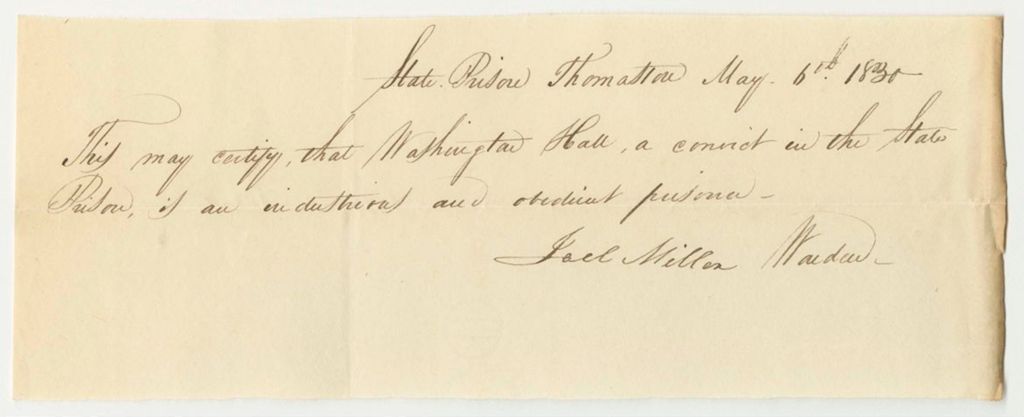 State Prison Thomaston May. 6th. 1830
This may certify, that Washington Hall, a convict in the State
Prison, is an industrious and obedient prisoner -
Joel Miller Warden -